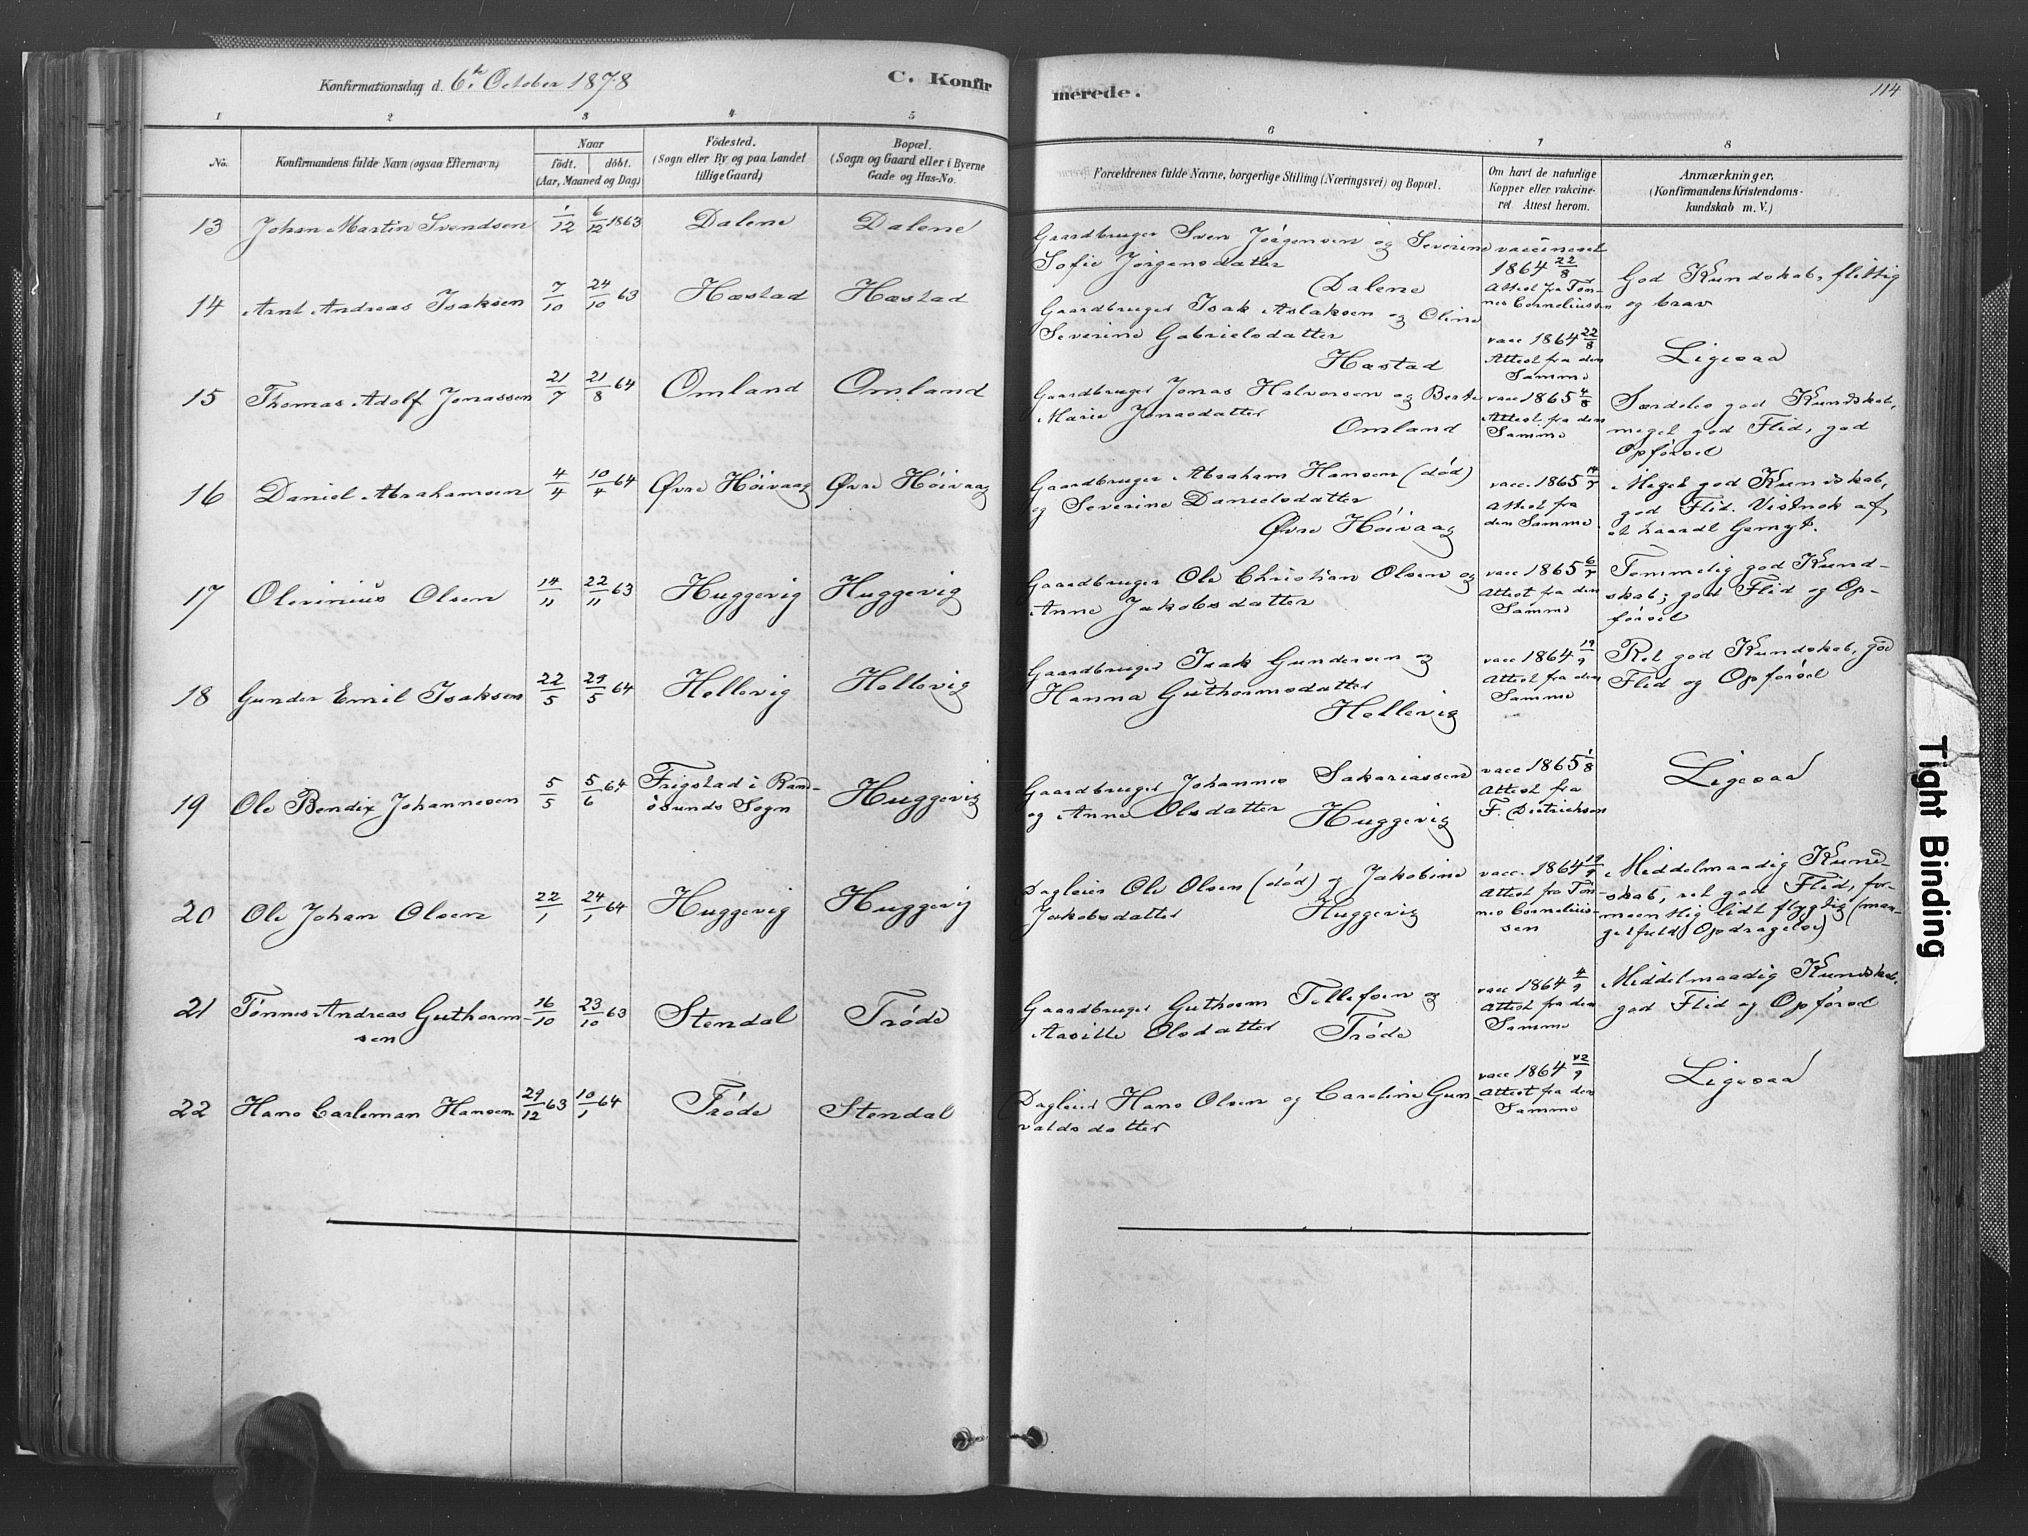 Konfirmationsdag d. 6te October 1878
C. Konfirmerede.
114
1 2 3 4 5 6 7 8
No.
Konfirmandens fulde Navn (ogsaa Efternavn)
Naar
födt. döbt.
(Aar, Maaned og Dag)
Födested.
(Sogn eller By og paa Landet
tillige Gaard)
Bopæl.
(Sogn og Gaard eller i Byerne
Gade og Hus-No.
Forældrenes fulde Navne, borgerlige Stilling (Næringsvei) og Bopæl.
Om havt de naturlige
Kopper eller vakcine-
ret. Attest herom.
Anmærkninger.
(Konfirmandens Kristendoms-
kundskab m. V.)
13 Johan Martin Svendsen 1/12 6/12 1863 Dalene Dalene
Gaardbruger Sven Jørgensen og Severine
Sofie Jørgensdatter
Dalene
vaccineret
1864 22/8
Attest fra Tøn-
nes Corneliussen
God Kundskab, flittig
og brav
14 Arnt Andreas Isaksen 7/10 24/10 63 Hæstad Hæstad
Gaardbruger Isak Aslaksen og Oline
Severine Gabrielsdatter
Hæstad
vacc 1864 22/8
Attest fra den
Samme
Ligesaa
15 Thomas Adolf Jonassen 21/7 21/8 64 Omland Omland
Gaardbruger Jonas Halvorsen og Berte
Marie Jonasdatter
Omland
vacc 1865 4/8
Attest fra den
Samme
Særdeles god Kundskab,
meget god Flid, god
Opførsel
16 Daniel Abrahamsen 4/4 10/4 64 Øvre Høivaag Øvre Høivaag
Gaardbruger Abraham Hansen (død)
og Severine Danielsdatter
Øvre Høivaag
vacc. 1865
Attest fra
den Samme
Meget god Kundskab,
god Flid. Vistnok af
et haardt Gemyt.
17 Olevinius Olsen 14/11 22/11 63 Huggevig Huggevig
Gaardbruger Ole Christian Olsen og
Anne Jakobsdatter
vacc 1865
Attest fra den
Samme
Temmelig god Kund-
skab; god Flid og Op-
førsel
18 Gunder Emil Isaksen 22/5 29/5 64 Hellevig Hellevig
Gaardbruger Isak Gundersen og
Hanna Guthormsdatter
Hellevig
vacc 1864 19/9
Attest fra den
Samme
Ret god Kundskab, god
Flid og Opførsel
19 Ole Bendix Johannesen 5/5 5/6 64 Frigstad i Rand-
øsunds Sogn
Huggevig
Gaardbruger Johannes Sakariassen
og Anne Olsdatter Huggevig
vacc 1865 1/8
Attest fra
F. Dietrichson
Ligesaa
20 Ole Johan Olsen 22/1 24/1 64 Huggevig Huggevig
Dagleier Ole Olsen (død) og Jakobine
Jakobsdatter Huggevig
vacc. 1864 19/9
Attest fra Tøn-
nes Cornelius-
sen
Middelmaadig Kund-
skab, ret god Flid, for-
mentlig lidt flygtig (man-
gelfuld Opdragelse)
21 Tønnes Andreas Guthorm-
sen
16/10 23/10 63 Stendal Trøde
Gaardbruger Guthorm Tellefsen og
Aasille Olsdatter Trøde
vacc 1864 4/9
Attest fra den
Samme
Middelmaadig Kundskab,
god Flid og Opførsel
22 Hans Carleman Hansen 29/12 63 10/1 64 Trøde Stendal
Dagleier Hans Olsen og Caroline Gun-
valdsdatter
vacc 1864 12/9
Attest fra den
Samme
Ligesaa
Tight Binding